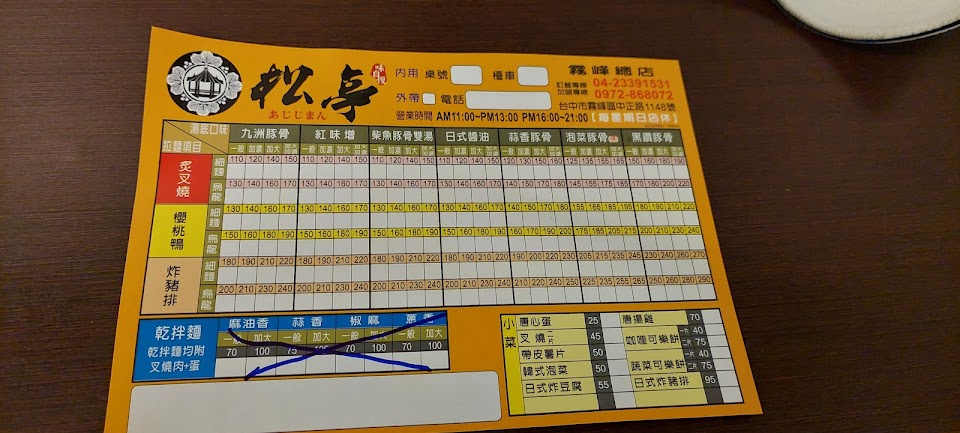 松亭
あじじまん
內用 桌號 檯車
外帶 電話
霧峰總店
訂餐專線 04-23391531
加盟專線 0972-868072
台中市霧峰區中正路1148號
營業時間 AM11:00~PM13:00 PM16:00~21:00 【每星期日店休】
湯底口味 九洲豚骨 紅味增 柴魚豚骨雙湯 日式醬油 蒜香豚骨 泡菜豚骨 黑鑽豚骨
拉麵項目 一般 加濃 加大 一般 加濃 加大 一般 加濃 加大 一般 加濃 加大 一般 加濃 加大 一般 加濃 加大 一般 加濃 加大
炙叉燒 細麵 110 120 140 150 110 120 140 150 110 120 140 150 110 120 140 150 120 130 150 160 125 135 155 165 150 160 180 190
烏龍 130 140 160 170 130 140 160 170 130 140 160 170 130 140 160 170 140 150 170 180 145 155 175 185 170 180 200 220
櫻桃鴨 細麵 130 140 160 170 130 140 160 170 130 140 160 170 130 140 160 170
烏龍 150 160 180 190 150 160 180 190 150 160 180 190 150 160 180 190
炸豬排 細麵 180 190 210 220 180 190 210 220 180 190 210 220 180 190 210 220
烏龍 200 210 230 240 200 210 230 240 200 210 230 240 200 210 230 240
乾拌麵 麻油香 蒜香 椒麻
一般 加大 一般 加大 一般 加大 一般 加大
乾拌麵均附 70 100 75 70 100 70 100
叉燒肉+蛋
小菜
唐心蛋 25 唐揚雞 70
叉燒 45 咖哩可樂餅 一片 40 二片 75
帶皮薯片 50
韓式泡菜 50 蔬菜可樂餅 一片 40 二片 75
日式炸豆腐 55 日式炸豬排 95